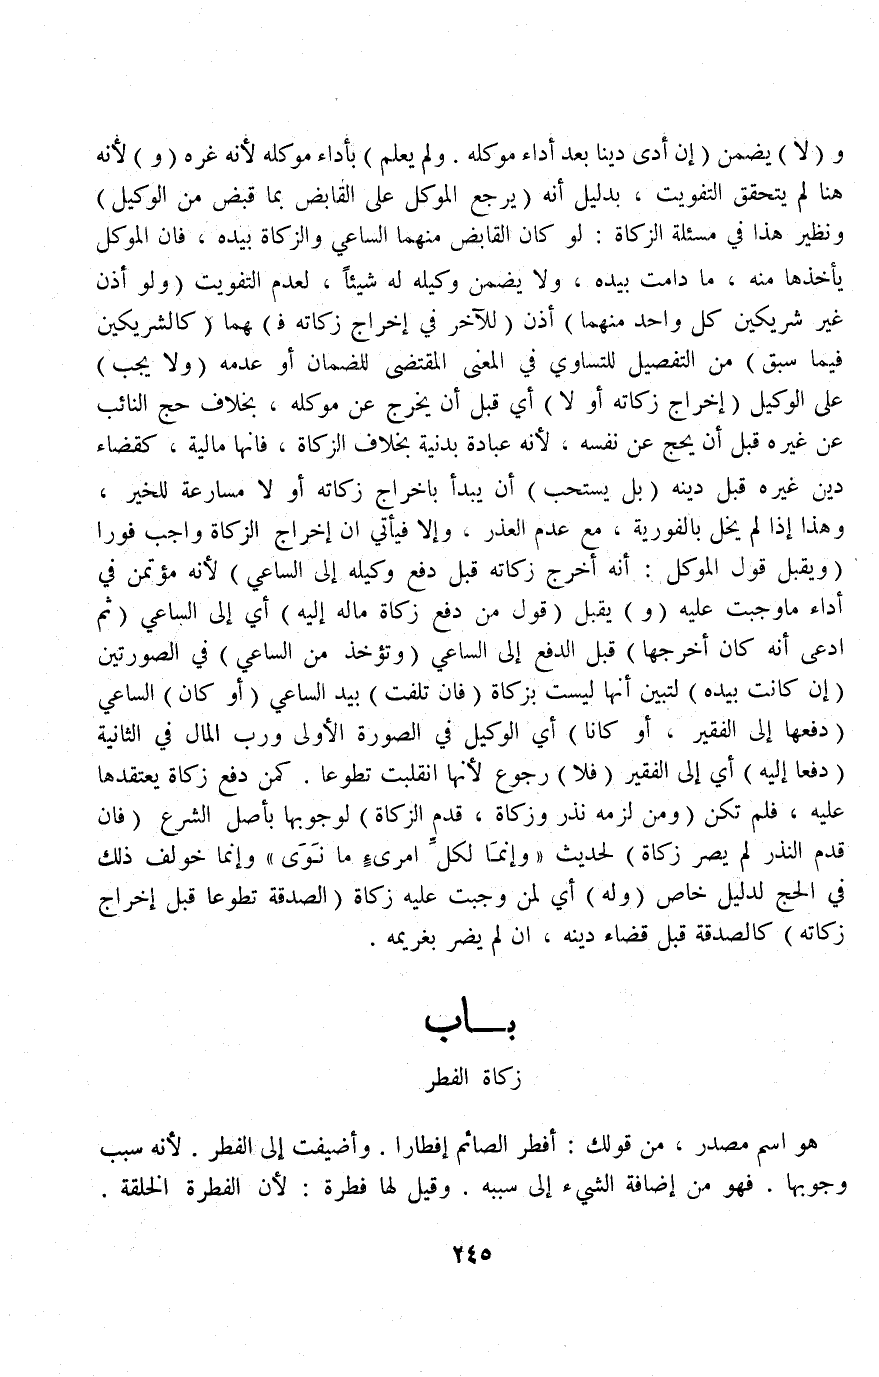 و ( لا ) يضمن ( إن أدى دينا بعد أداء موكله . ولم يعلم ) بأداء موكله لأنه غره ( و ) لأنه
هنا لم يتحقق التفويت ، بدليل أنه ( يرجع الموكل على القابض بما قبض من الوكيل )
ونظير هذا في مسئلة الزكاة : لو كان القابض منهما الساعي والزكاة بيده ، فان الموكل
يأخذها منه ، ما دامت بيده ، ولا يضمن وكيله له شيئاً ، لعدم التفويت ( ولو أذن
غير شريكين كل واحد منهما ) أذن ( للآخر في إخراج زكاته ف ) هما ( كالشريكين
فيما سبق ) من التفصيل للتساوي في المعنى المقتضى للضمان أو عدمه ( ولا يجب )
على الوكيل ( إخراج زكاته أو لا ) أي قبل أن يخرج عن موكله ، بخلاف حج النائب
عن غيره قبل أن يحج عن نفسه ، لأنه عبادة بدنية بخلاف الزكاة ، فانها مالية ، كقضاء
دين غيره قبل دينه ( بل يستحب ) أن يبدأ باخراج زكاته أو لا مسارعة للخير ،
وهذا إذا لم يخل بالفورية ، مع عدم العذر ، وإلا فيأتي ان إخراج الزكاة واجب فورا
( ويقبل قول الموكل : أنه أخرج زكاته قبل دفع وكيله إلى الساعي ) لأنه مؤتمن في
أداء ماوجبت عليه ( و ) يقبل ( قول من دفع زكاة ماله إليه ) أي إلى الساعي ( ثم
ادعى أنه كان أخرجها ) قبل الدفع إلى الساعي ( وتؤخذ من الساعي ) في الصورتين
( إن كانت بيده ) لتبين أنها ليست بزكاة ( فان تلفت ) بيد الساعي ( أو كان ) الساعي
( دفعها إلى الفقير ، أو كانا ) أي الوكيل في الصورة الأولى ورب المال في الثانية
( دفعا إليه ) أي إلى الفقير ( فلا ) رجوع لأنها انقلبت تطوعا . كمن دفع زكاة يعتقدها
عليه ، فلم تكن ( ومن لزمه نذر وزكاة ، قدم الزكاة ) لوجوبها بأصل الشرع ( فان
قدم النذر لم يصر زكاة ) لحديث « وإنمَا لكلِّ امرىءٍ ما نَوَى » وإنما خولف ذلك
في الحج لدليل خاص ( وله ) أي لمن وجبت عليه زكاة ( الصدقة تطوعا قبل إخراج
زكاته ) كالصدقة قبل قضاء دينه ، ان لم يضر بغريمه .
بـــاب
زكاة الفطر
هو اسم مصدر ، من قولك : أفطر الصائم إفطارا . وأضيفت إلى الفطر . لأنه سبب
وجوبها . فهو من إضافة الشيء إلى سببه . وقيل لها فطرة : لأن الفطرة الخلقة .
٢٤٥